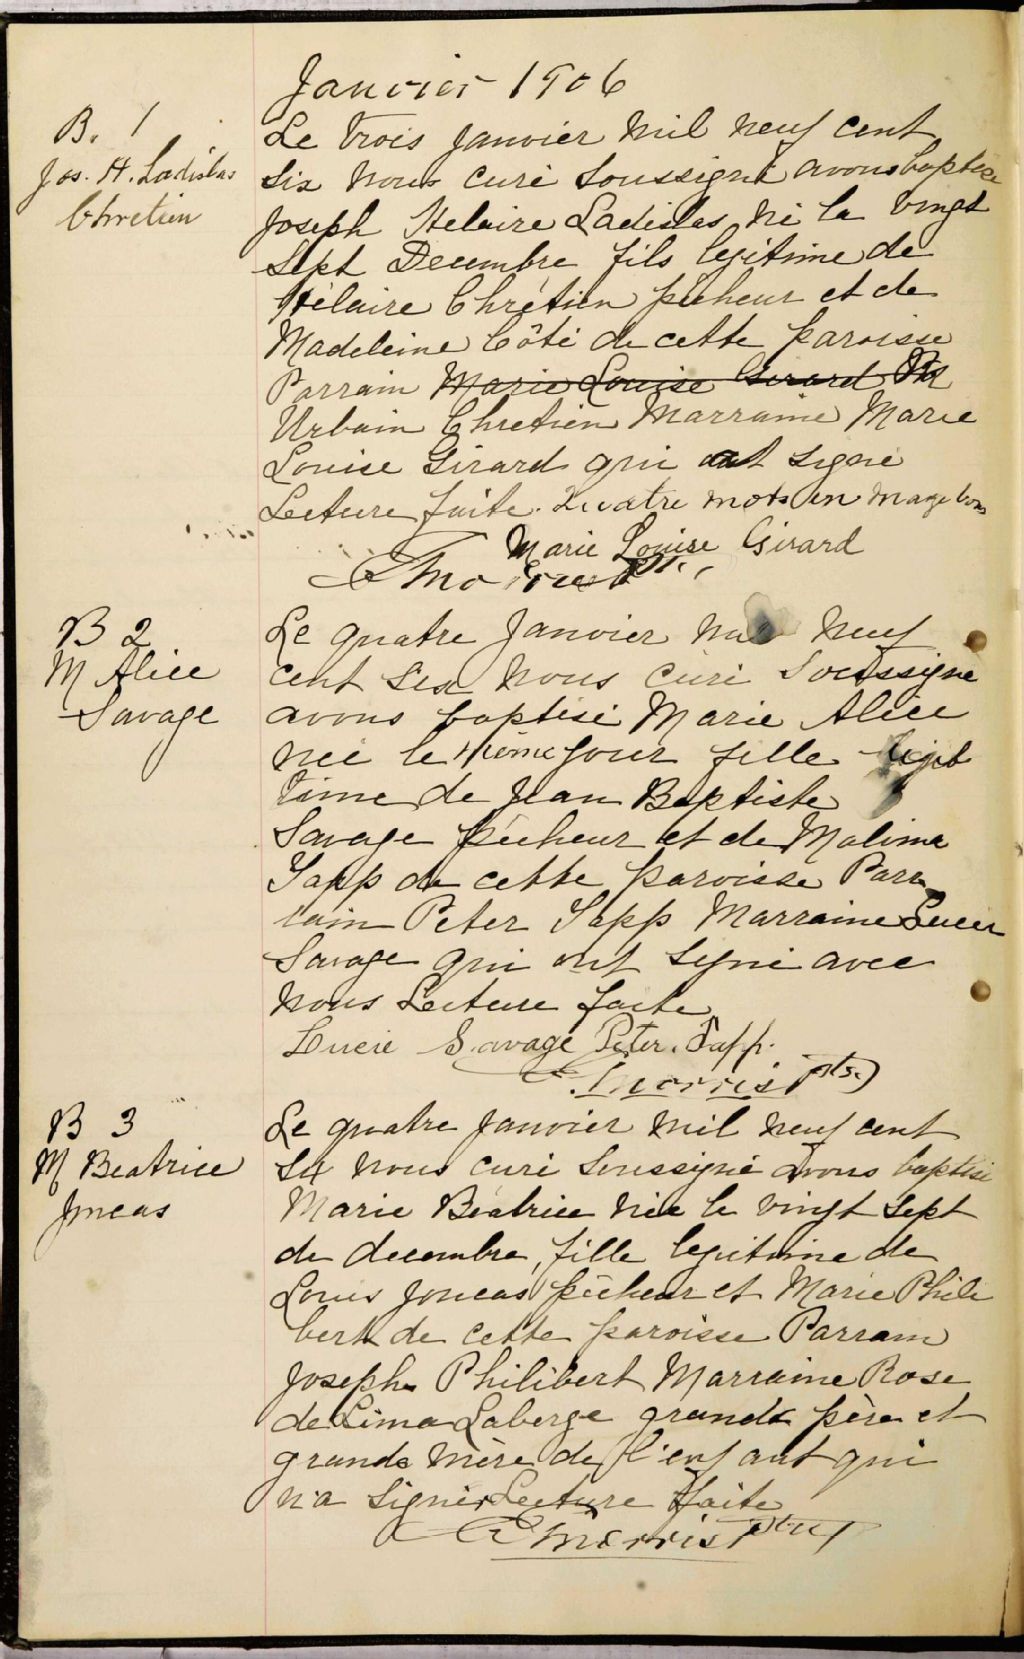 Janvier 1906
B. 1
Jos. H. Ladislas
Chretien
Le trois janvier mil neuf cent
six nous curé soussigné avons baptisé
Joseph Helaire Ladislas né la vingt
sept Decembre fils legitime de
Hélaire Chrétien pêcheur et de
Madeleine Côté de cette paroisse
Parrain Marie Louise Girard
Urbain Chretien Marraine Marie
Louise Girard qui ont signé
Lecture faite. Quatre mots en marge bons
Marie Louise Girard
E Morris Ptr.
B 2
M Alice
Savage
Le quatre Janvier mil neuf
cent six nous curé soussigné
avons baptisé Marie Alice
née le même jour fille légi
time de Jean Baptiste
Savage pêcheur et de Malima
Tapp de cette paroisse Parr
rain Peter Tapp Marraine Lucie
Savage qui ont signé avec
nous Lecture faite
Lucie Savage Peter. Tapp.
E Morris Ptr.
B 3
M Beatrice
Joncas
Le quatre Janvier mil neuf cent
six nous curé soussigné avons baptisé
Marie Béatrice née le vingt sept
de decembre, fille legitime de
Louis Joncas pêcheur et Marie Phili
bert de cette paroisse Parrain
Joseph Philibert Marraine Rose
de Lima Laberge grands père et
grande mère de l'enfant qui
n'a signer Lecture faite
E Morris Ptre